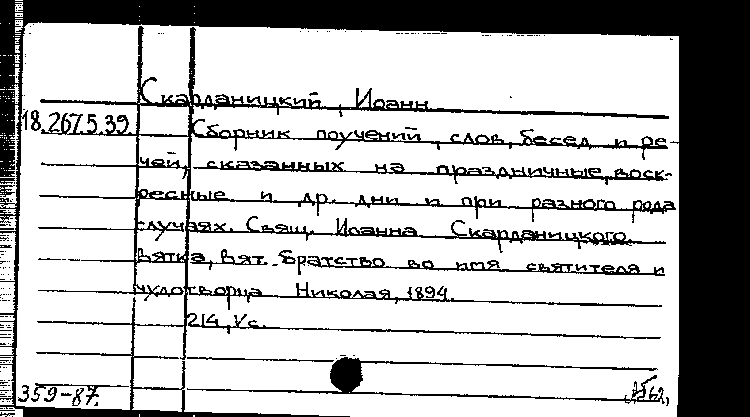 Скарданицкий, Иоанн
18.267.5.39
Сборник поучений, слов, бесед и ре-
чей, сказанных на праздничные, воск-
ресные и др. дни и при разного рода
случаях. Свящ. Иоанна Скарданицкого.
Вятка, Вят. братство во имя святителя и
чудотворца Николая, 1894.
214, V с.
359-87.